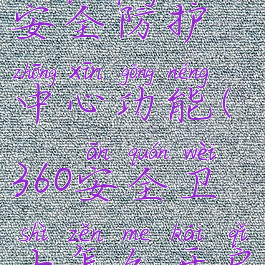 安全防护
zhōng xīn gōng néng
中心功能(
ān quán wèi
360安全卫
shì zěn me kāi qǐ